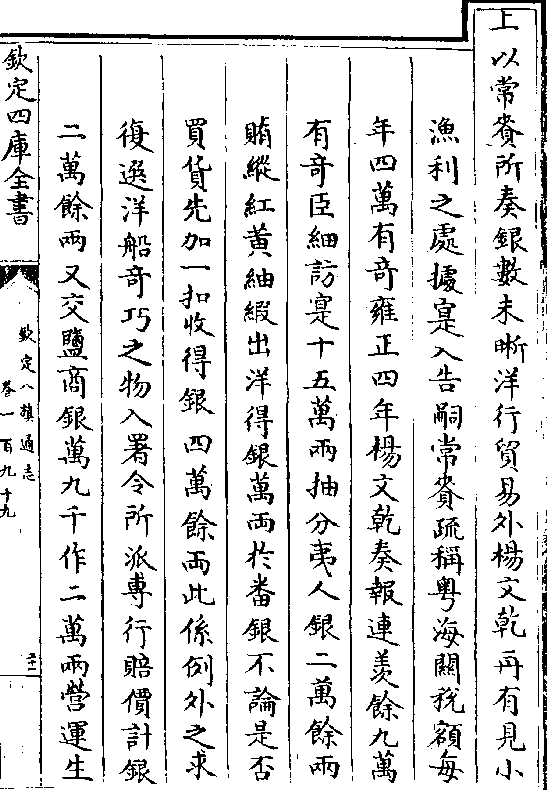 上以常賚所奏銀數未晰洋行貿易外楊文乾再有見小
漁利之處據寔入告嗣常賚疏稱粤海關稅額每
年四萬有奇雍正四年楊文乾奏報連羡餘九萬
有奇臣細訪寔十五萬兩抽分夷人銀二萬餘兩
賄縱紅黄紬緞出洋得銀萬兩於番銀不論是否
買貨先加一扣收得銀四萬餘兩此係例外之求
復選洋船奇巧之物入署令所派專行賠價計銀
二萬餘兩又交鹽商銀萬九千作二萬兩營運生
欽定四庫全書
欽定八旗通志
卷一百九十九